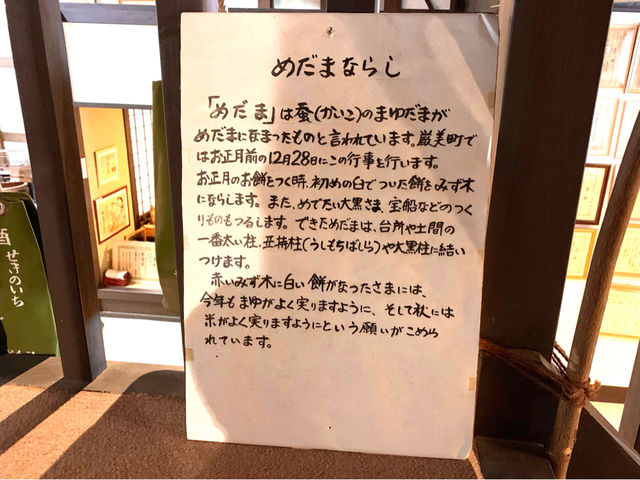 めだまならし
「めだま」は蚕(かいこ)のまゆだまが
めだまになまったものと言われています。厳美町で
はお正月前の12月28日にこの行事を行います。
お正月のお餅をつく時、初めの臼でついた餅をみず木
にならします。また、めでたい大黒さま、宝船などのつく
りものもつるします。できためだまは、台所や土間の
一番太い柱、丑持柱(うしもちばしら)や大黒柱に結い
つけます。
赤いみず木に白い餅がなったさまには、
今年もまゆがよく実りますように、そして秋には
米がよく実りますようにという願いがこめら
れています。
酒
せきのいち